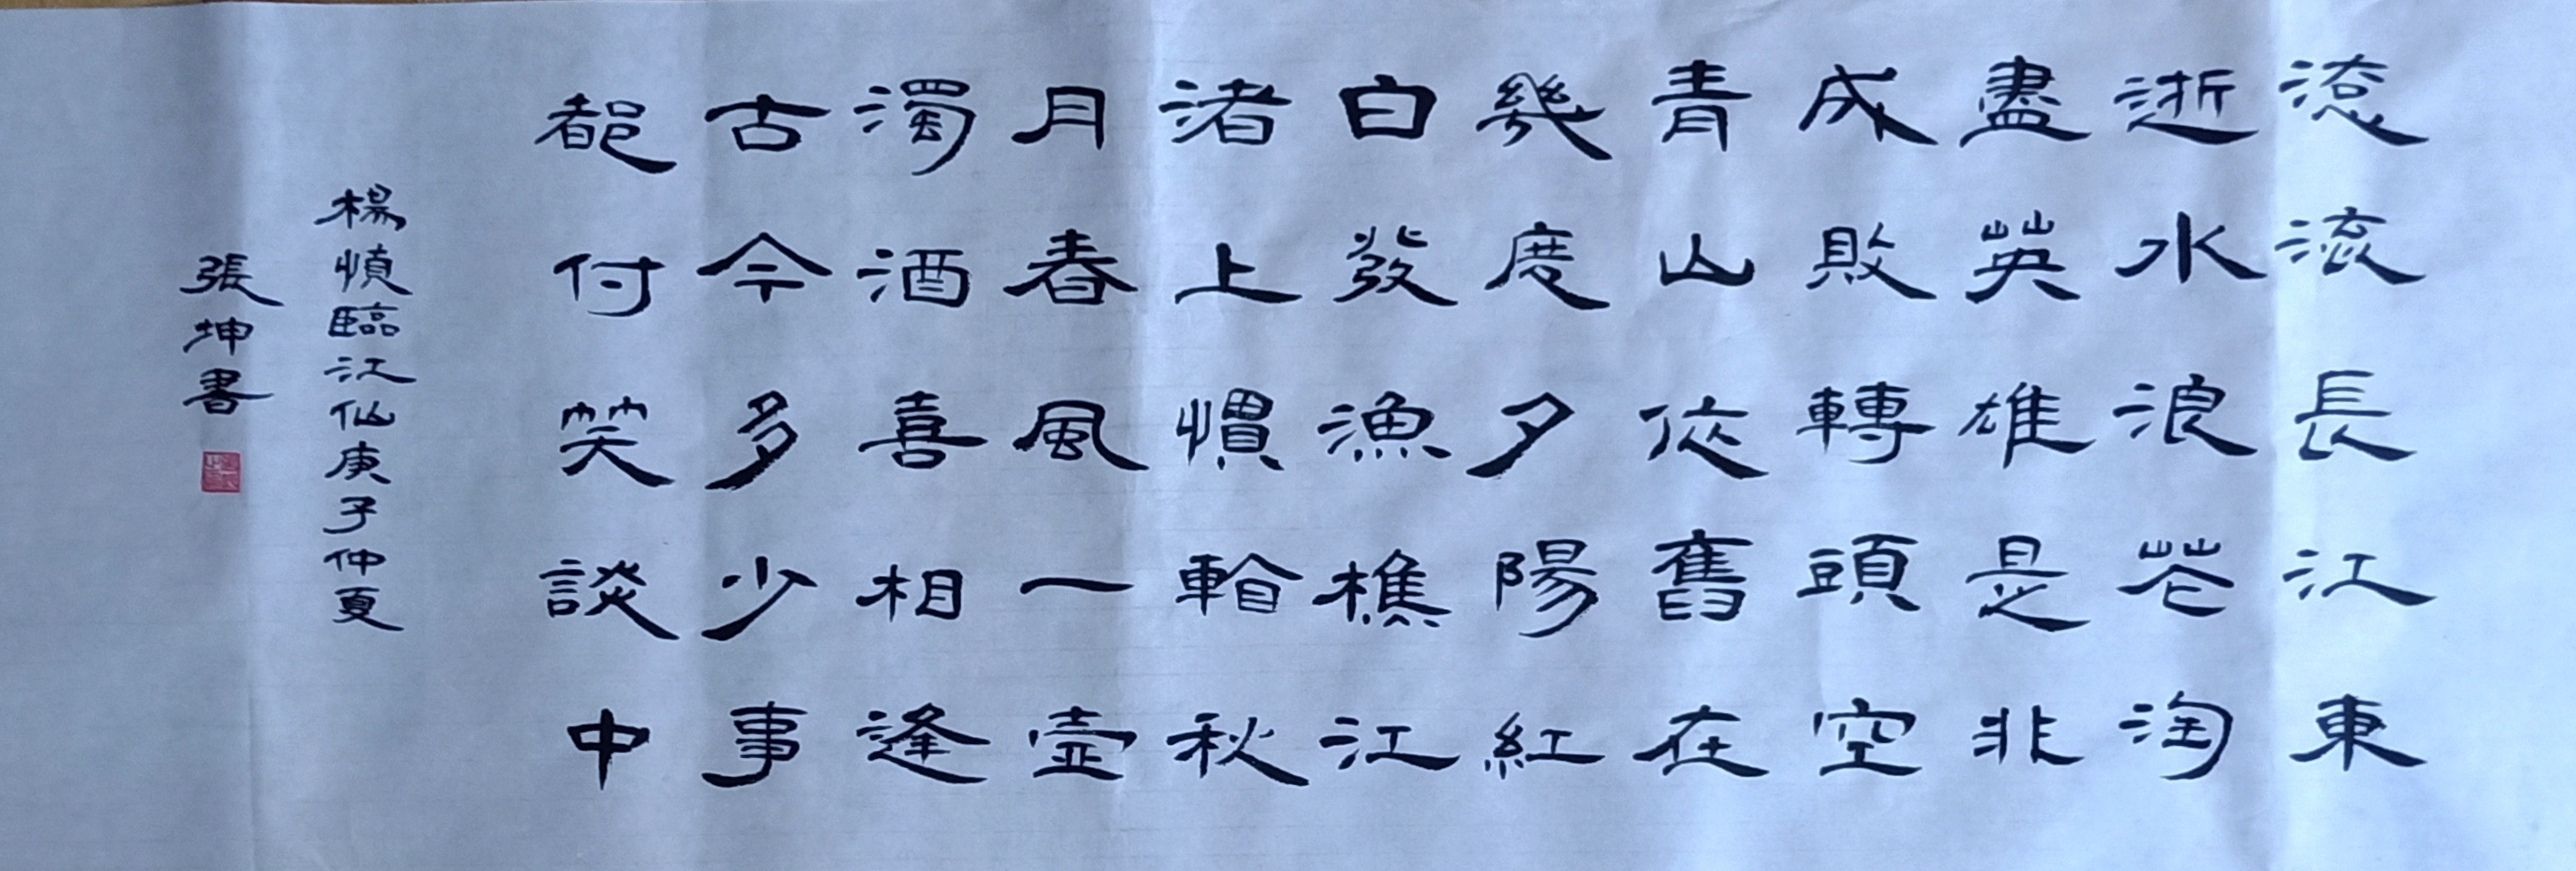 滚滚長江東
逝水浪花淘
盡英雄是非
成敗轉頭空
青山依舊在
幾度夕陽紅
白發漁樵江
渚上慣看秋
月春風一壺
濁酒喜相逢
古今多少事
都付笑談中
楊慎臨江仙庚子仲夏
張坤書